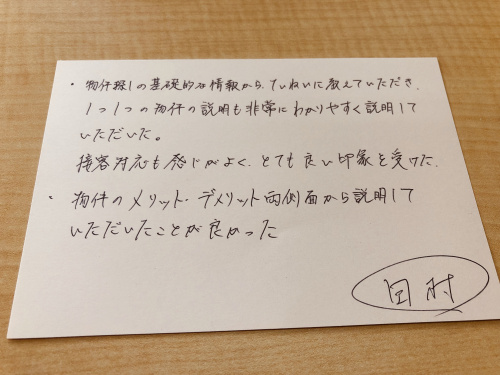 ・物件探しの基礎的な情報から、ていねいに教えていただき、
1つ1つの物件の説明も非常にわかりやすく説明して
いただいた。
接客対応も感じがよく、とても良い印象を受けた。
・物件のメリット・デメリット両側面から説明して
いただいたことが良かった
田村